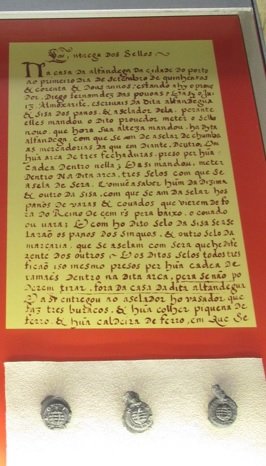 Da Entrega dos Sellos
Na casa da alfandega da cidade do porto
ao primeiro dia de setembro de quinhentos
& corenta & dous annos: estando ahy o prove
dor, Diogo fernandes das povoas
Almoxarife, escrivais da Dita alfandegua
& sisa dos panos, & aselador dela, perante
elles mandou o Dito provedor meter o sello
novo, que hora sua alteza mandou, ha Dyta
alfandega com que se am de aselar de chumbo
as mercadorias da quy em diante, Dentro Em
hũa arca de tres fechaduras, preso per hũa
Cadea Dentro nella; & asi mandou, meter
Dentro Na Dita arca, tres Sellos com que Se
asela De Sera
& outro Da Sisa com que Se am Da Selar hos
panos De varas & covados que vierem De fo
ra Do Reino De cem rs pera baixo, o covado
ou vara; & com ho Dito Selo Da Sisa Se Se
larão os panos Dos
marçaria, que Se aselam com Sera que he dife
rente Dos outros & Os Ditos Selos todos tres
ficão iso mesmo presos per hũa cadea De
arames Dentro na Dita arca, pera Se não po
Derem tirar, fora Da casa Da dita alfandegua
entregou ao aselador ho vasador que
faz tres buracos, & hũa colher piquena De
ferro, & hũa caldeira De ferro, em que Se